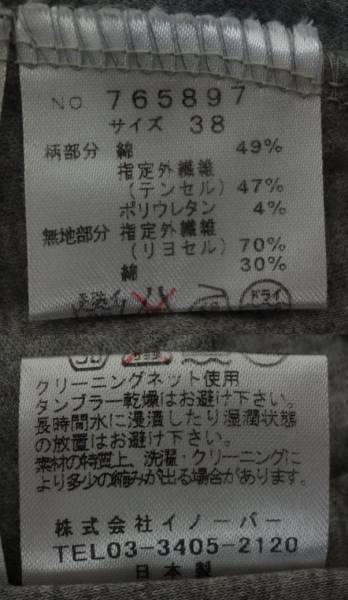 NO 765897
サイズ 38
柄部分 綿 49%
指定外繊維
(テンセル) 47%
ポリウレタン 4%
無地部分 指定外繊維
(リヨセル) 70%
綿 30%
手洗イ ドライ
クリーニングネット使用
タンブラー乾燥はお避け下さい。
長時間水に浸漬したり湿潤状態
の放置はお避け下さい。
素材の特質上、洗濯・クリーニングに
より多少の縮みが出る場合があります。
株式会社イノーバー
TEL03-3405-2120
日本製